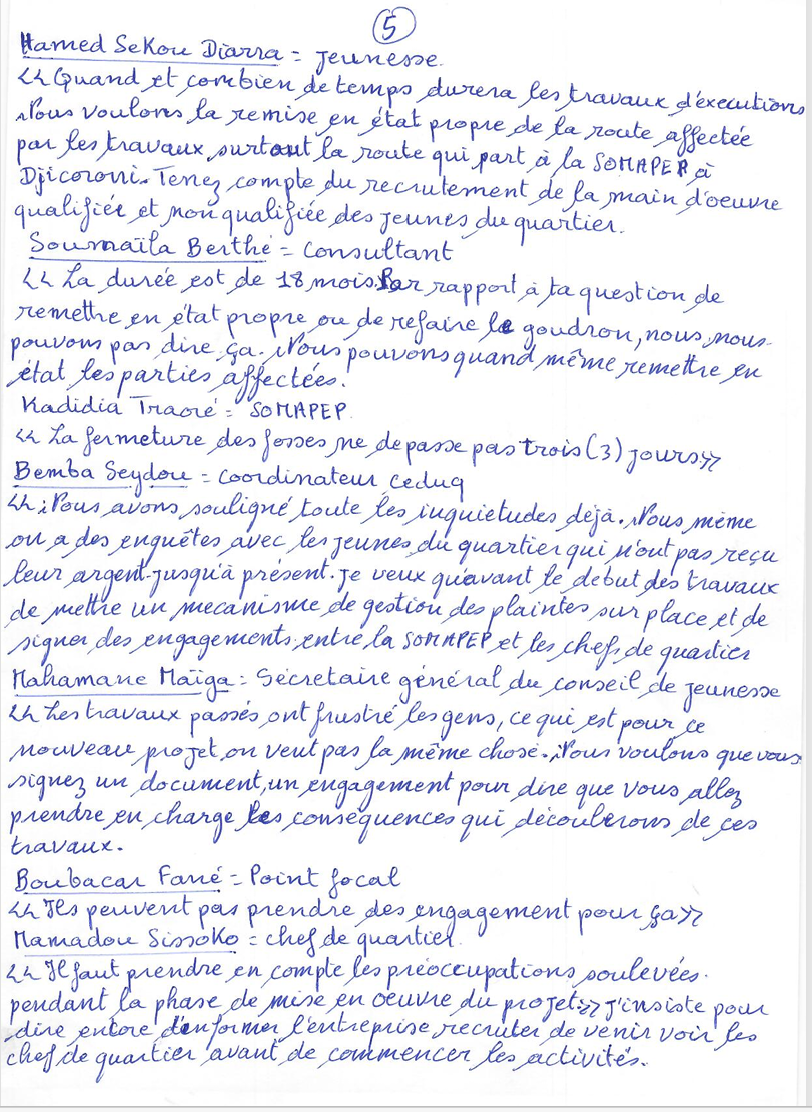 5
Hamed Sekou Diarra = jeunesse.
<< Quand et combien de temps durera les travaux d'éxecutions
Nous voulons la remise en état propre de la route affectée
par les travaux surtout la route qui part à la SOMAPEP à
Djicoroni. Tenez compte du recrutement de la main d'oeuvre
qualifiée et non qualifiée des jeunes du quartier.
Soumaïla Berthé = Consultant
<< La durée est de 18 mois. Par rapport à ta question de
remettre en état propre ou de refaire le goudron, nous nous
pouvons pas dire ça. Nous pouvons quand même remettre en
état les parties affectées.
Kadidia Traoré = SOMAPEP
<< La fermeture des fosses ne depasse pas trois (3) jours >>
Bemba Seydou = Coordinateur Ceduq
<< Nous avons souligné toute les inquietudes dejà. Nous même
on a des enquêtes avec les jeunes du quartier qui n'ont pas reçu
leur argent jusqu'à présent. je veux qu'avant le debut des travaux
de mettre un mecanisme de gestion des plaintes sur place et de
signer des engagements entre la SOMAPEP et les chefs de quartier
Mahamane Maïga = Sécretaire général du conseil de jeunesse
<< Les travaux passés ont frustré les gens, ce qui est pour ce
nouveau projet on veut pas la même chose. Nous voulons que vous
signez un document, un engagement pour dire que vous allez
prendre en charge les conséquences qui découlerons de ces
travaux.
Boubacar Fané = Point focal
<< Ils peuvent pas prendre des engagement pour ça >>
Mamadou Sissoko = chef de quartier.
<< Il faut prendre en compte les préoccupations soulevées
pendant la phase de mise en oeuvre du projet >> j'insiste pour
dire encore d'informer l'entreprise recruter de venir voir les
chef de quartier avant de commencer les activités.